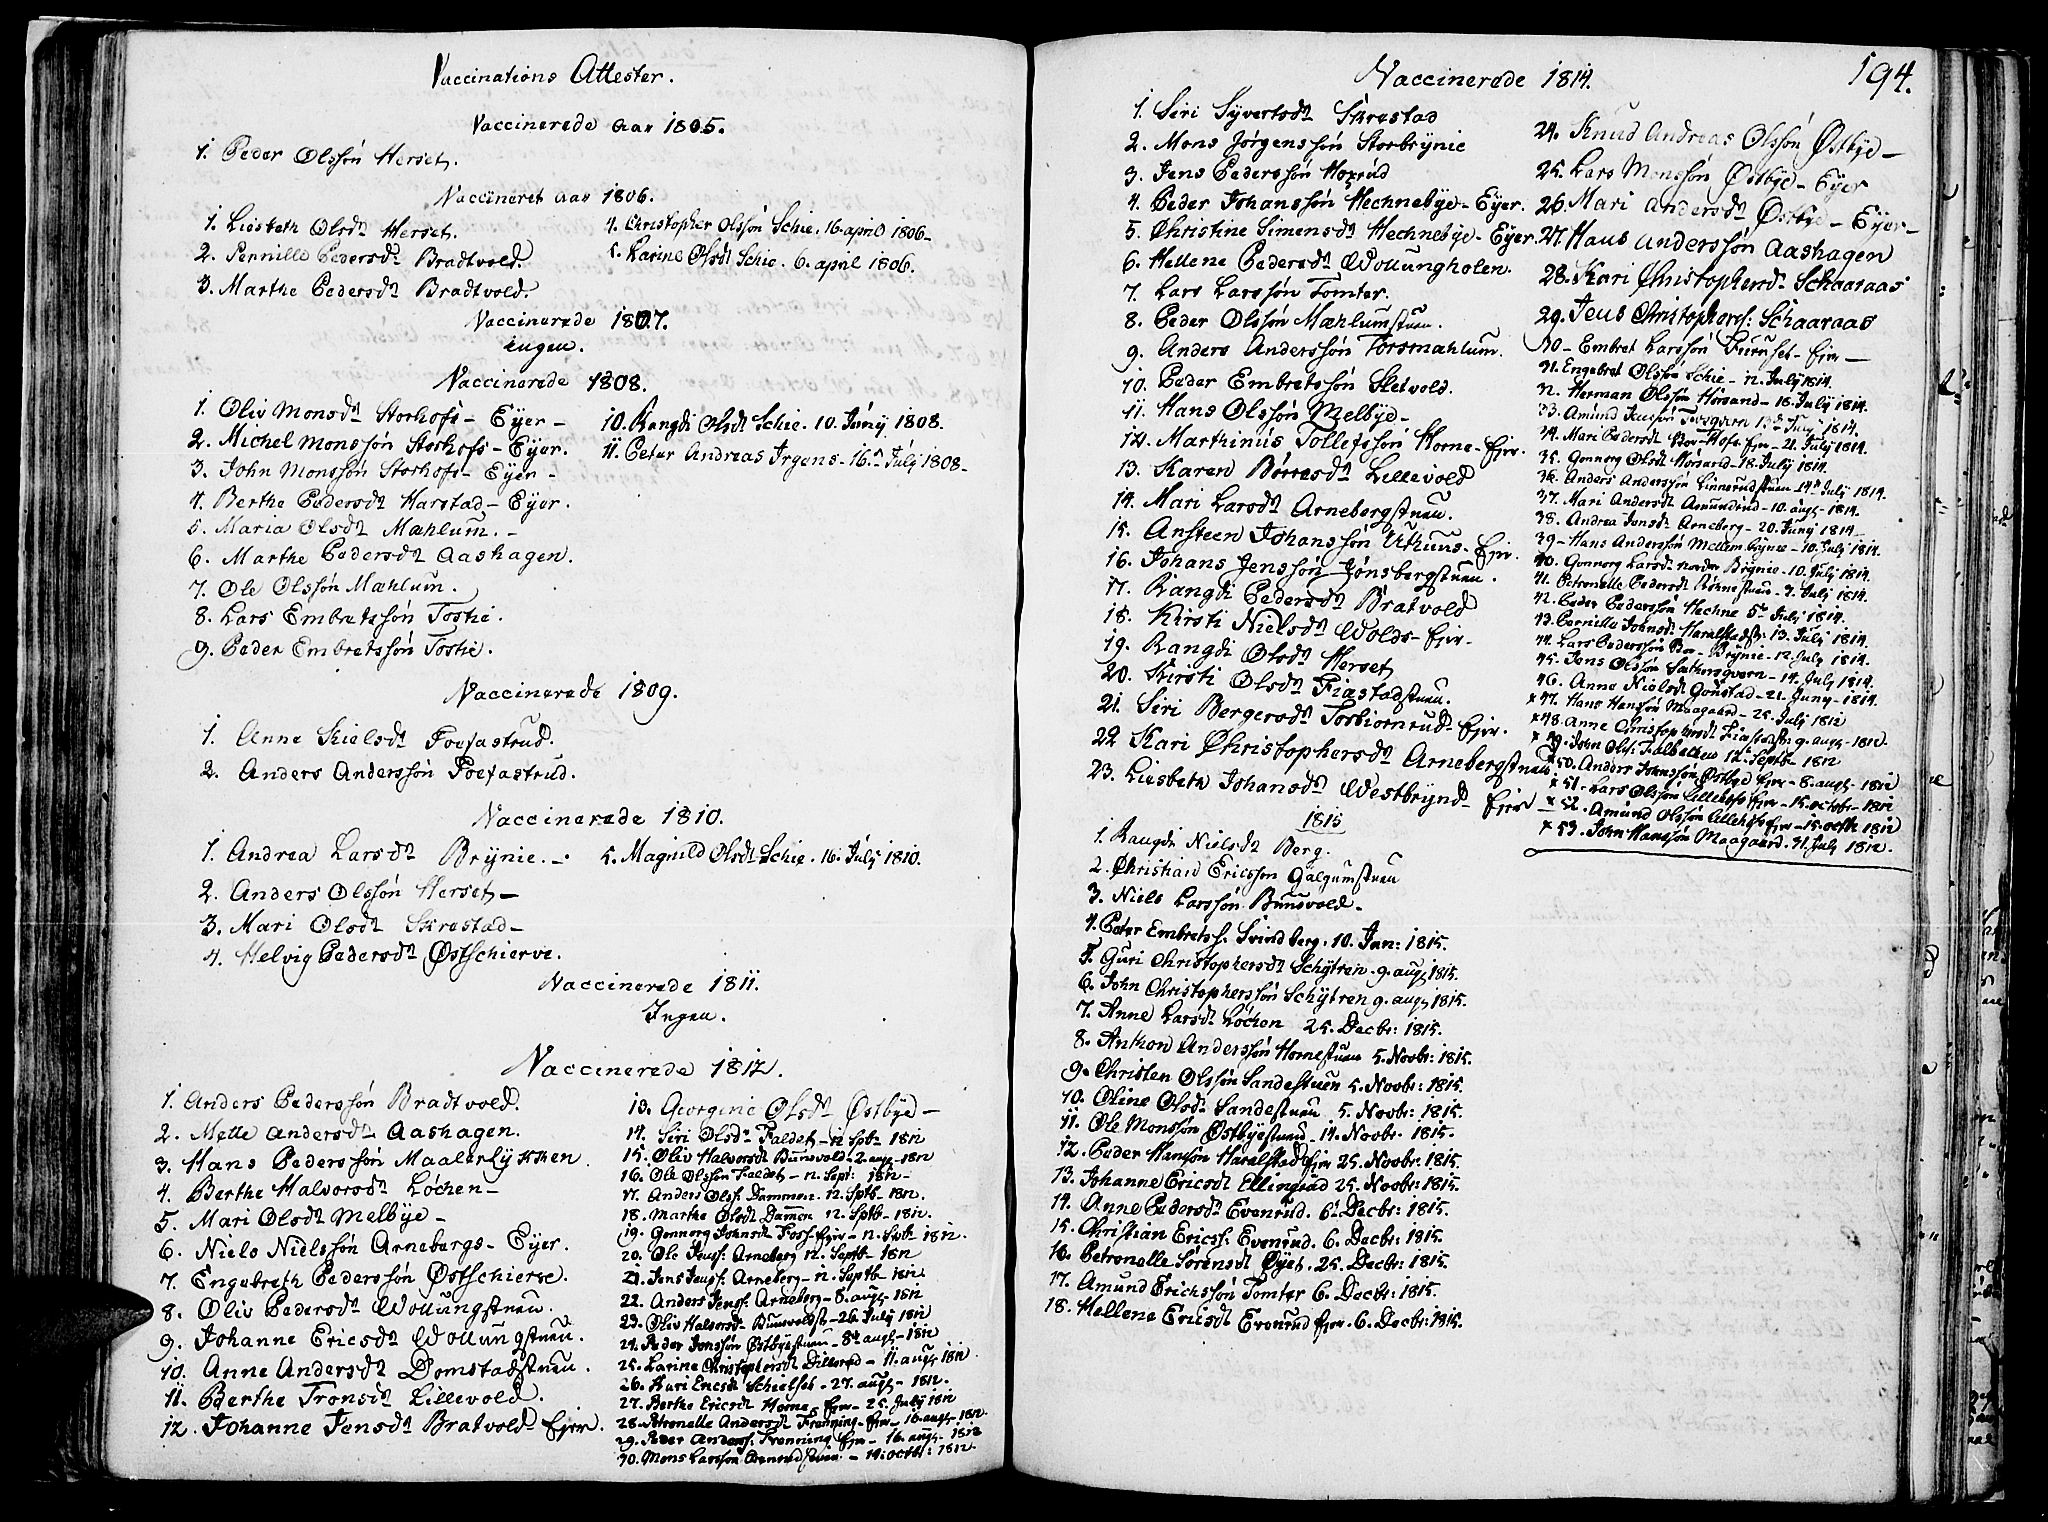 Vaccinations Attester.
Vaccinerede aar 1805.
1. Peder Olssøn Herset.
Vaccineret aar 1806.
1. Liesbeth Olsdr Herset.
2. Pernille Pedersdr Bradtvold.
3. Marthe Pedersdr Bradtvold.
4. Christopher Olssøn Schie. 16. april 1806-
5. Karine Olsdr Schie. 6. april 1806.
Vaccinerede 1807.
ingen.
Vaccinerede 1808.
1. Oliv Monsdr Storhofs- Eyer-
2. Michel Monssøn Storhofs- Eyer.
3. John Monssøn Storhofs- Eyer-
4. Berthe Pedersdr Harstad- Eyer.
5. Maria Olsdr Mæhlum.-
6. Marthe Pedersdr Aashagen.
7. Ole Olssøn Mæhlum.
8. Lars Embretssøn Toskie.
9. Peder Embretssøn Toskie.
10. Rangdi Olsdr Schie. 10. Juny 1808.
11. Peter Andreas Irgens- 16. July 1808-
Vaccinerede 1809.
1. Anne Kielsdr Foefastrud.
2. Anders Anderssøn Foefastrud.
Vaccinerede 1810.
1. Andrea Larsdr Brynie.-
2. Anders Olssøn Herset-
3. Mari Olsdr Skrestad-
4. Helvig Pedersdr Østschierve.
5. Magnild Olsdr Schie. 16. July 1810.
Vaccinerede 1811.
Ingen.
Vaccinerede 1812.
1. Anders Pederssøn Bradtvold.
2. Mette Andersdr Aashagen.
3. Hans Pederssøn Maalerlykken.
4. Berthe Halvorsdr Løchen-
5. Mari Olsdr Melbye-
6. Niels Nielssøn Arnebergs- Eyer.
7. Engebreth Pederssøn Østschierve.
8. Oliv Pedersdr Wollungstuen.
9. Johanne Ericsdr Wollungstuen.
10. Anne Andersdr Domstadstuen.
11. Berthe Tronsdr Lillevold.
12. Johanne Jensdr Bratvold- Ejer.
13. Georgine Olsdr Østbye-
14. Siri Olsdr Faldet- 12 Sptb- 1812
15. Oliv Halvorsdr Bunsvold- 2. aug- 1812
16. Ole Olssøn Faldet- 12. Sept: 1812-
17. Anders Olss: Dammen. 12. Sptb- 1812.
18. Marthe Olsdr Dammen 12. Sptb- 1812.
19. Gonnerg Johnsdr Foss- Ejer- 12. Sptb 1812.
20. Ole Jenss: Arneberg 12. Septb- 1812
21. Jens Jenss: Arneberg- 12. Septb- 1812
22. Anders Jenss: Arneberg- 8. aug- 1812
23. Oliv Halvorsdr Bunsvoldst- 26. July 1812
24. Peder Jonssøn Østbyestuen- 8de aug- 1812
25. Karine Christophersdr Dillerud- 11. aug 1812.
26. Kari Ericsdr Schielset- 27. aug- 1812.
27. Berthe Ericsdr Horne, Ejer- 25. July 1812
28. Petronelle Andersdr Frenning- Ejer- 16. aug- 1812.
29. Peder Anderss: Frenning Ejer- 16. aug- 1812
30. Mons Larssøn - 14. octbr: 1812.
194.
Vaccinerede 1814.
1. Siri Syvertsdr Skrestad
2. Mons Jørgenssøn Storbrynie
3. Jens Pederssøn Hoxrud
4. Peder Johanssøn Hechnebye- Eyer.
5. Christine Simensdr Hechnebye- Eyer.
6. Hellene Pedersdr Wollungholen.
7. Lars Larssøn Tomter.
8. Peder Olssøn Mæhlumstuen.
9. Anders Anderssøn Torsmæhlum.
10. Peder Embretssøn Sletvold.
11. Hans Olssøn Melbye-
12. Marthinus Tollefssøn Horne- Ejer.
13. Karen Børresdr Lillevold
14. Mari Larsdr Arnebergstuen.
15. Ansteen Johanssøn Uthuus- Ejer.
16. Johans Jenssøn Jønsbergstuen.
17. Rangdi Pedersdr Bratvold
18. Kirsti Nielsdr Wolds- Ejer-
19. Rangdi Olsdr Herset
20. Kirsti Olsdr Fiæstadstuen.
21. Siri Bergersdr Torbiornrud- Ejer.
22 Kari Christophersdr Arnebergstuen
23. Liesbeth Johansdr Westbrynd- Ejer
24. Knud Andreas Olssøn Østbye-
25. Lars Monssøn Østbye- Eyer
26. Mari Andersdr Østbye- Eyer-
27. Hans Anderssøn Aashagen
28. Kari Christophersdr Schaaraas
29. Jens Christophers: Schaaraas
30- Embret Larssøn Furuset- Ejer-
31. Engebret Olssøn Schie- 12. July 1814.
32. Herman Olssøn Hørsand- 18. July 1814.
33. Amund Jenssøn 13de July 1814.
34. Mari Pedersdr Stor-Hofs- Ejer- 21. July 1814.
35. Gonnerg Olsdr Hørsand- 18. July 1814.
36. Anders Anderssøn Linnerudstuen 14de July 1814.
37. Mari Andersdr Amundrud- 10. aug- 1814.
38. Andrea Jonsdr Arneberg- 20. Juny 1814
39- Hans Anderssøn Mellembrynie- 10. July 1814.
40. Gonnerg Larsdr nordre Brynie- 10. July 1814.
41. Petronelle Pedersdr - 9. July 1814.
42. Peder Pederssøn Hechne 5te July 1814.
43. Pernille Johnsdr Haralstadst: 13. July 1814.
44. Lars Pederssøn - Brynie- 12. July 1814.
45. Jens Olssøn Sætherqvern- 14. July 1814.
46. Anne Nielsdr Gonstad- 21. Juny- 1814.
x 47. Hans Hanssøn Maagaard- 25. July 1812
x 48. Anne Christophersdr Fiæstadst 9. aug- 1812.
x 49. John Olss: Falbekken 12te Septb- 1812
x 50. Anders Johnssøn Østbye Ejer- 8. aug- 1812
x 51. Lars Olssøn Lillehofs Ejer- 15. octobr- 1812
x 52. Amund Olssøn Lillehofs Ejer- 15. octbr 1812
x 53. John Hanssøn Maagaard. 31. July 1812.
1815
1. Rangdi Nielsdr Berg.
2. Christian Ericssøn Galgumstuen
3. Niels Larssøn Bunsvold-
4. Peter Embretss. Svindberg. 10. Jan: 1815.
5. Guri Christophersdr Schytren. 9. aug 1815.
6. John Christopherssøn Schytren 9. aug 1815.
7. Anne Larsdr Løchen 25. Decbr: 1815.
8. Anthon Anderssøn Hornestuen 5. Novbr: 1815.
9. Christen Olssøn Sandestuen 5. Novbr: 1815.
10. Oline Olsdr Sandestuen. 5. Novbr: 1815.
11. Ole Monssøn Østbyestuen- 14. Novbr. 1815.
12. Peder Hanssøn Haralstad Ejer 25. Novbr: 1815.
13. Johanne Ericsdr Ellingrud 25. Novbr: 1815.
14. Anne Pedersdr Evenrud. 6te Decbr: 1815.
15. Christian Ericss: Evenrud. 6. Decbr: 1815.
16. Petronelle Sørensdr Øyet. 25. Decbr: 1815.
17. Amund Erichssøn Tomter 6. Decbr: 1815.
18. Hellene Ericsdr Evenrud Ejer. 6. Decbr: 1815.